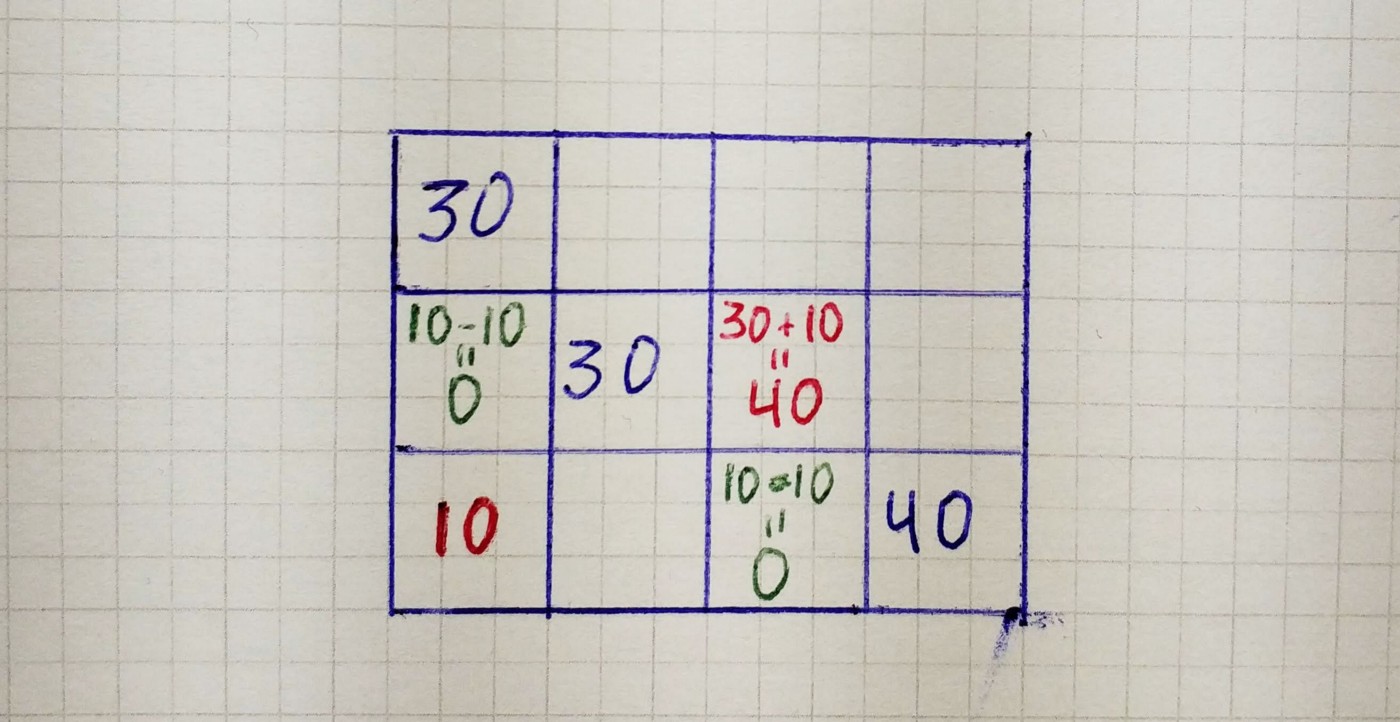 30
10-10 30 30+10
= =
0 40
10 10-10 40
=
0